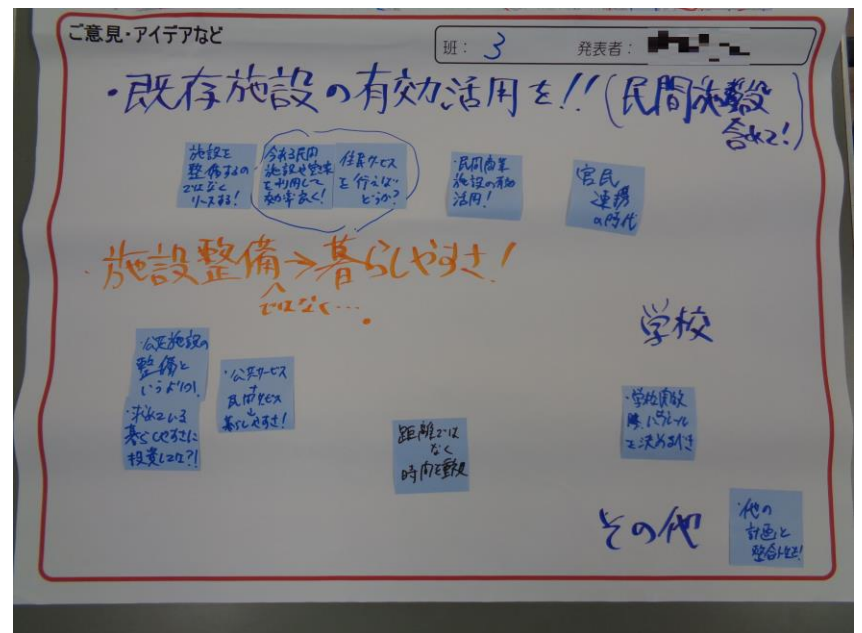 ご意見・アイデアなど
班： 3
発表者：
・既存施設の有効活用を!!(民間施設
含めて!)
施設を
整備するの
ではなく
リースする!
今ある民間
施設や空家
を利用して
効率良く!
住民サービス
を行えば
どうか?
・民間商業
施設の有効
活用!
官民
連携
の時代
・施設整備→暮らしやすさ!
ではなく…。
・公共施設の
整備と
いうよりは、
・求めている
暮らしやすさに
投資しては?!
・公共サービス
民間サービス
↓
暮らしやすさ!
距離では
なく
時間を重視
学校
・学校開放
ルール
を決めるべき
その他
・他の
計画と
整合性を!